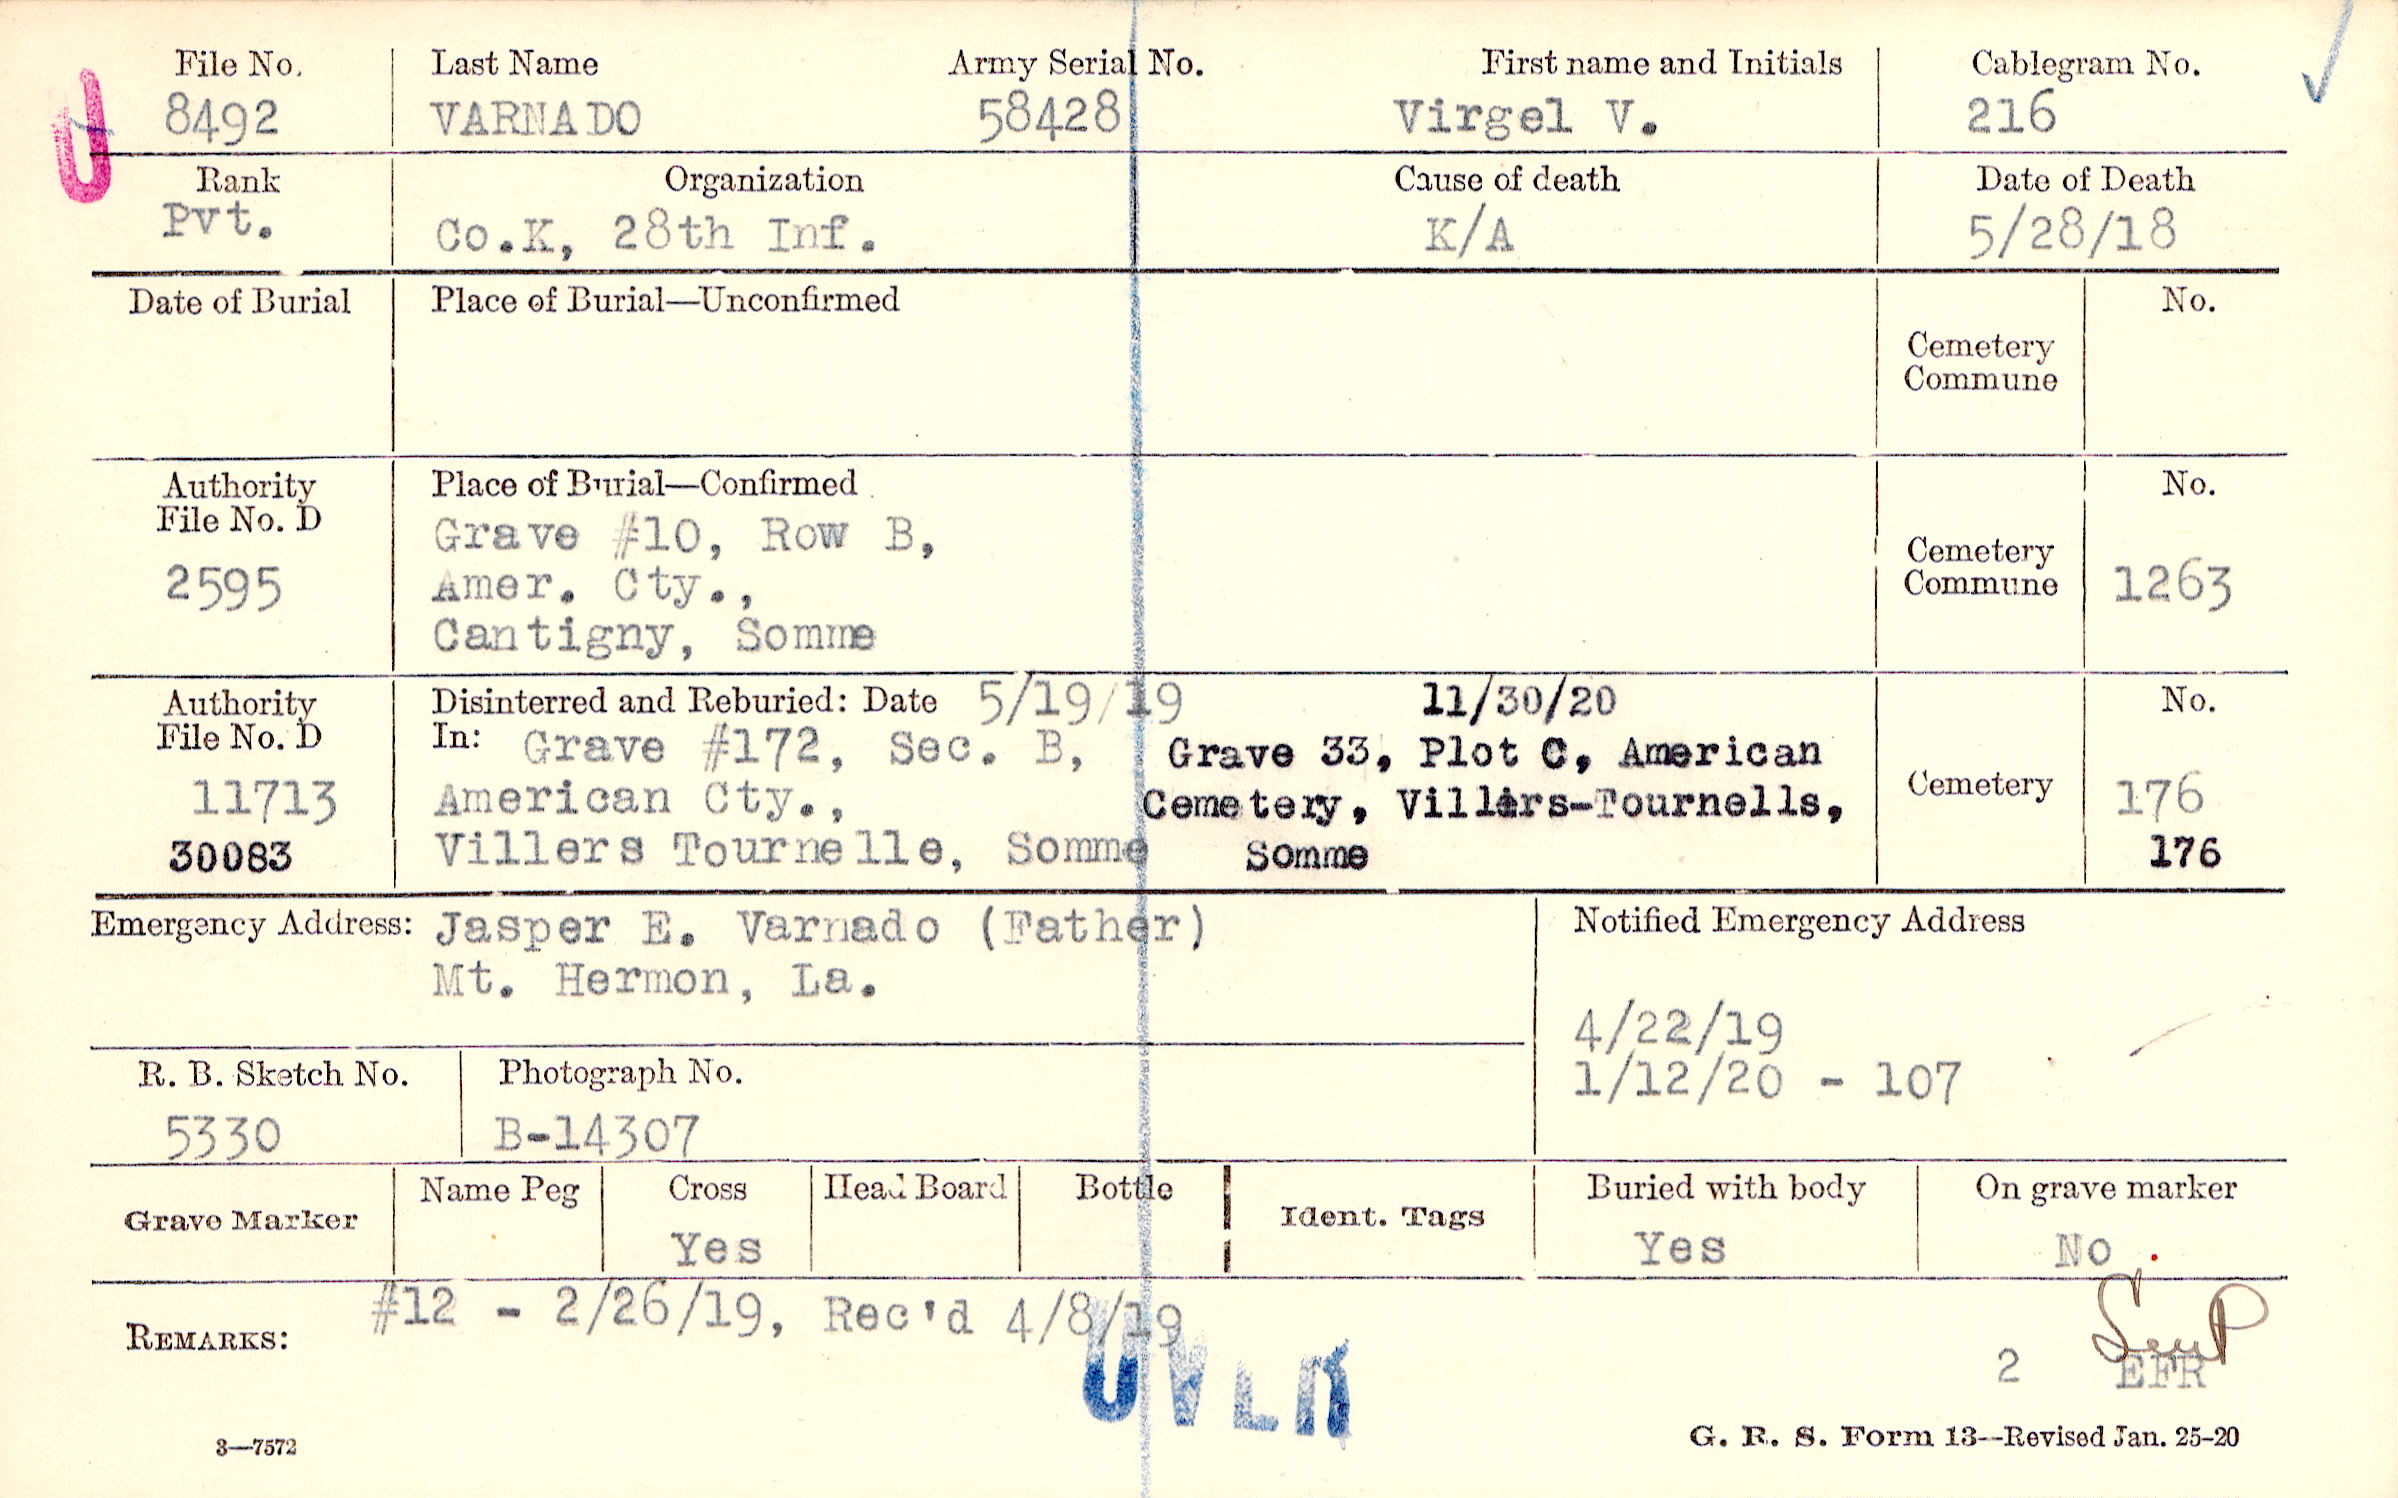 File No. Last Name Army Serial No. First name and Initials Cablegram No.
8492 VARNADO 58428 Virgel V. 216
Rank Organization Cause of death Date of Death
Pvt. Co.K, 28th Inf. K/A 5/28/18
Date of Burial Place of Burial—Unconfirmed No.
Cemetery
Commune
Authority Place of Burial—Confirmed No.
File No. D
Grave #10, Row B,
2595 Amer. Cty., Cemetery
Commune 1263
Cantigny, Somme
Authority Disinterred and Reburied: Date 5/19/19 11/30/20 No.
File No. D In: Grave #172, Sec. B, Grave 33, Plot C, American
11713 American Cty., Cemetery, Villers-Tournells, Cemetery 176
30083 Villers Tournelle, Somme Somme 176
Emergency Address: Jasper E. Varnado (Father) Notified Emergency Address
Mt. Hermon, La.
4/22/19
R. B. Sketch No. Photograph No. 1/12/20 - 107
5330 B-14307
Grave Marker Name Peg Cross Head Board Bottle Ident. Tags Buried with body On grave marker
Yes Yes No.
REMARKS: #12 - 2/26/19, Rec'd 4/8/19
2 EFR
3—7572 G. R. S. Form 13—Revised Jan. 25-20